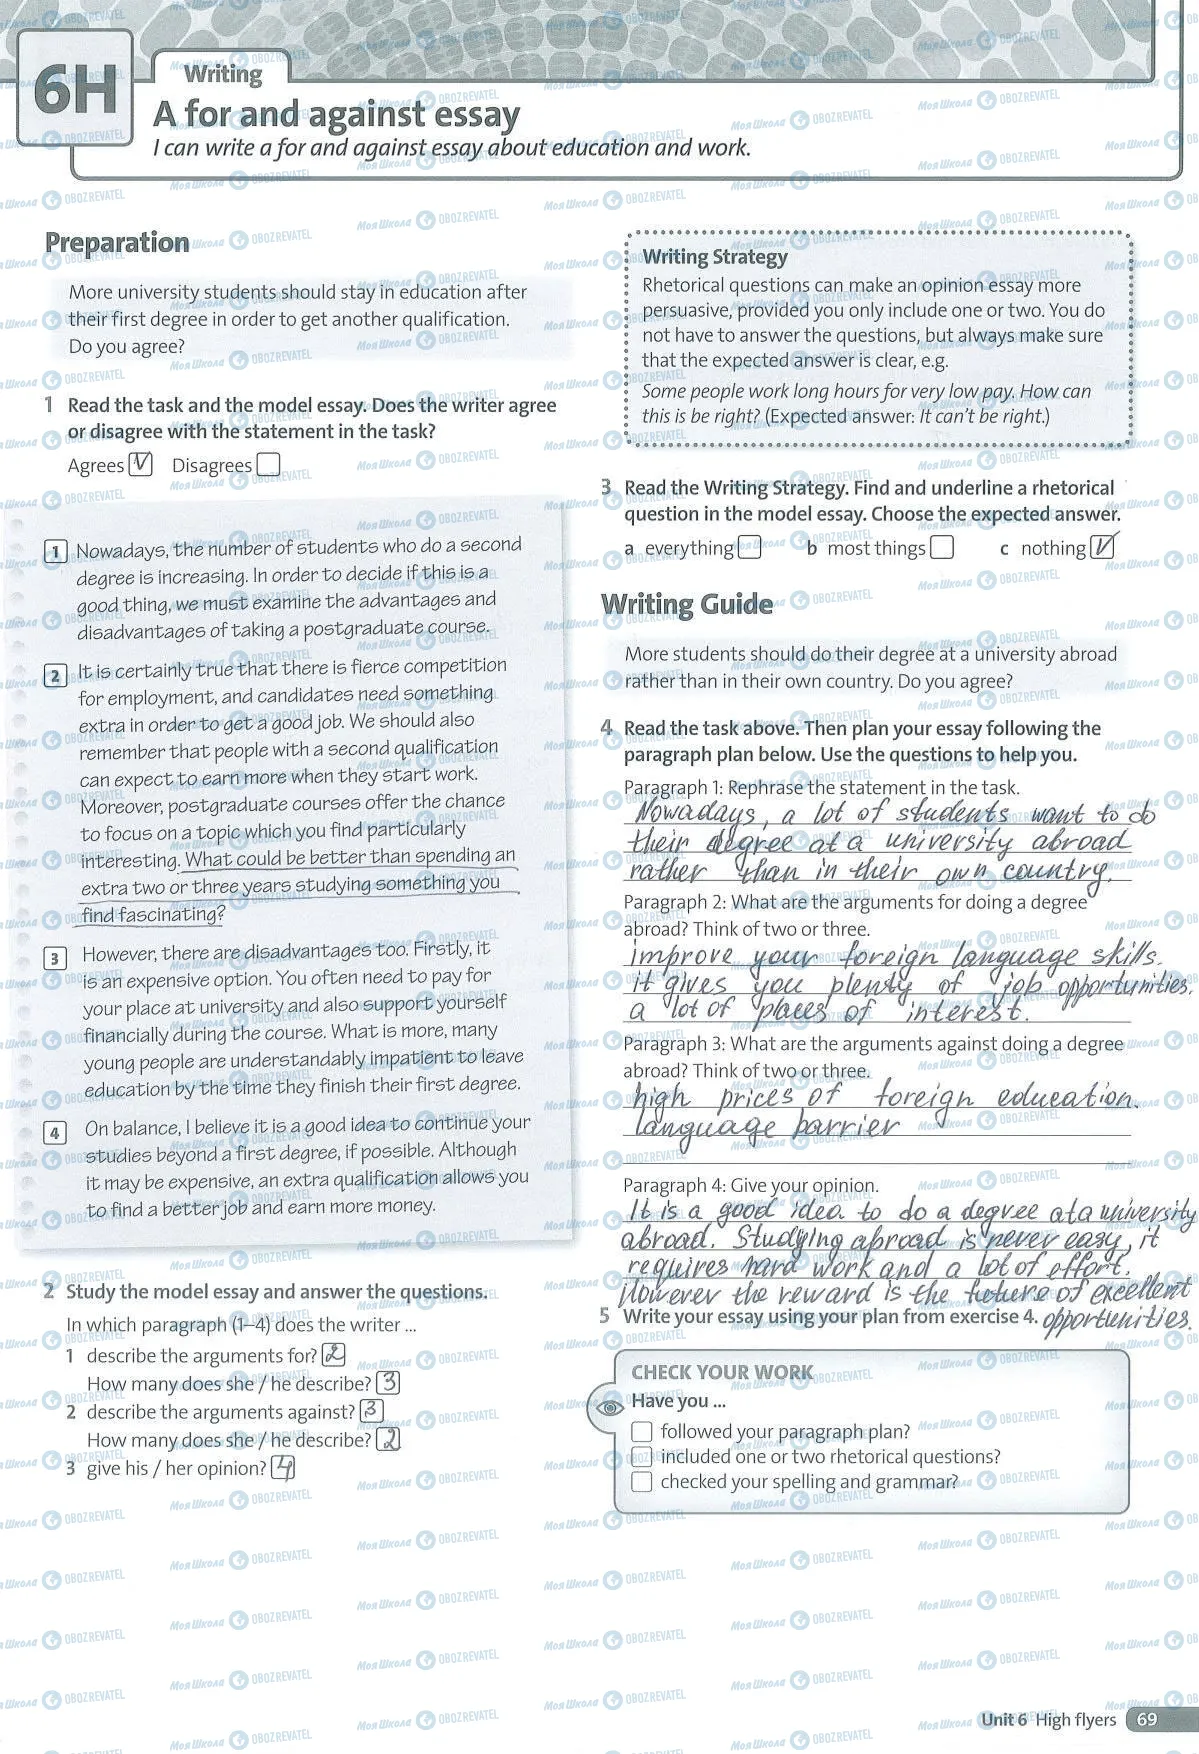 6H
Writing
A for and against essay
I can write a for and against essay about education and work.
Preparation
More university students should stay in education after
their first degree in order to get another qualification.
Do you agree?
1 Read the task and the model essay. Does the writer agree
or disagree with the statement in the task?
Agrees V Disagrees
1 Nowadays, the number of students who do a second
degree is increasing. In order to decide if this is a
good thing, we must examine the advantages and
disadvantages of taking a postgraduate course.
2 It is certainly true that there is fierce competition
for employment, and candidates need something
extra in order to get a good job. We should also
remember that people with a second qualification
can expect to earn more when they start work.
Moreover, postgraduate courses offer the chance
to focus on a topic which you find particularly
interesting. What could be better than spending an
extra two or three years studying something you
find fascinating?
3 However, there are disadvantages too. Firstly, it
is an expensive option. You often need to pay for
your place at university and also support yourself
financially during the course. What is more, many
young people are understandably impatient to leave
education by the time they finish their first degree.
4 On balance, I believe it is a good idea to continue your
studies beyond a first degree, if possible. Although
it may be expensive, an extra qualification allows you
to find a better job and earn more money.
2 Study the model essay and answer the questions.
In which paragraph (1–4) does the writer ...
1 describe the arguments for? 2
How many does she / he describe? 3
2 describe the arguments against? 3
How many does she / he describe? 2
3 give his / her opinion? 4
Writing Strategy
Rhetorical questions can make an opinion essay more
persuasive, provided you only include one or two. You do
not have to answer the questions, but always make sure
that the expected answer is clear, e.g.
Some people work long hours for very low pay. How can
this is be right? (Expected answer: It can't be right.)
3 Read the Writing Strategy. Find and underline a rhetorical
question in the model essay. Choose the expected answer.
a everything b most things c nothing V
Writing Guide
More students should do their degree at a university abroad
rather than in their own country. Do you agree?
4 Read the task above. Then plan your essay following the
paragraph plan below. Use the questions to help you.
Paragraph 1: Rephrase the statement in the task.
Nowadays, a lot of students want to do
their degree at a university abroad
rather than in their own country.
Paragraph 2: What are the arguments for doing a degree
abroad? Think of two or three.
improve your foreign language skills.
it gives you plenty of job opportunities.
a lot of places of interest.
Paragraph 3: What are the arguments against doing a degree
abroad? Think of two or three.
high prices of foreign education.
language barrier
Paragraph 4: Give your opinion.
It is a good idea to do a degree at a university
abroad. Studying abroad is never easy, it
requires hard work and a lot of effort.
However the reward is the future of excellent
opportunities.
5 Write your essay using your plan from exercise 4.
CHECK YOUR WORK
Have you ...
followed your paragraph plan?
included one or two rhetorical questions?
checked your spelling and grammar?
Unit 6 High flyers 69
Моя Школа OBOZREVATEL